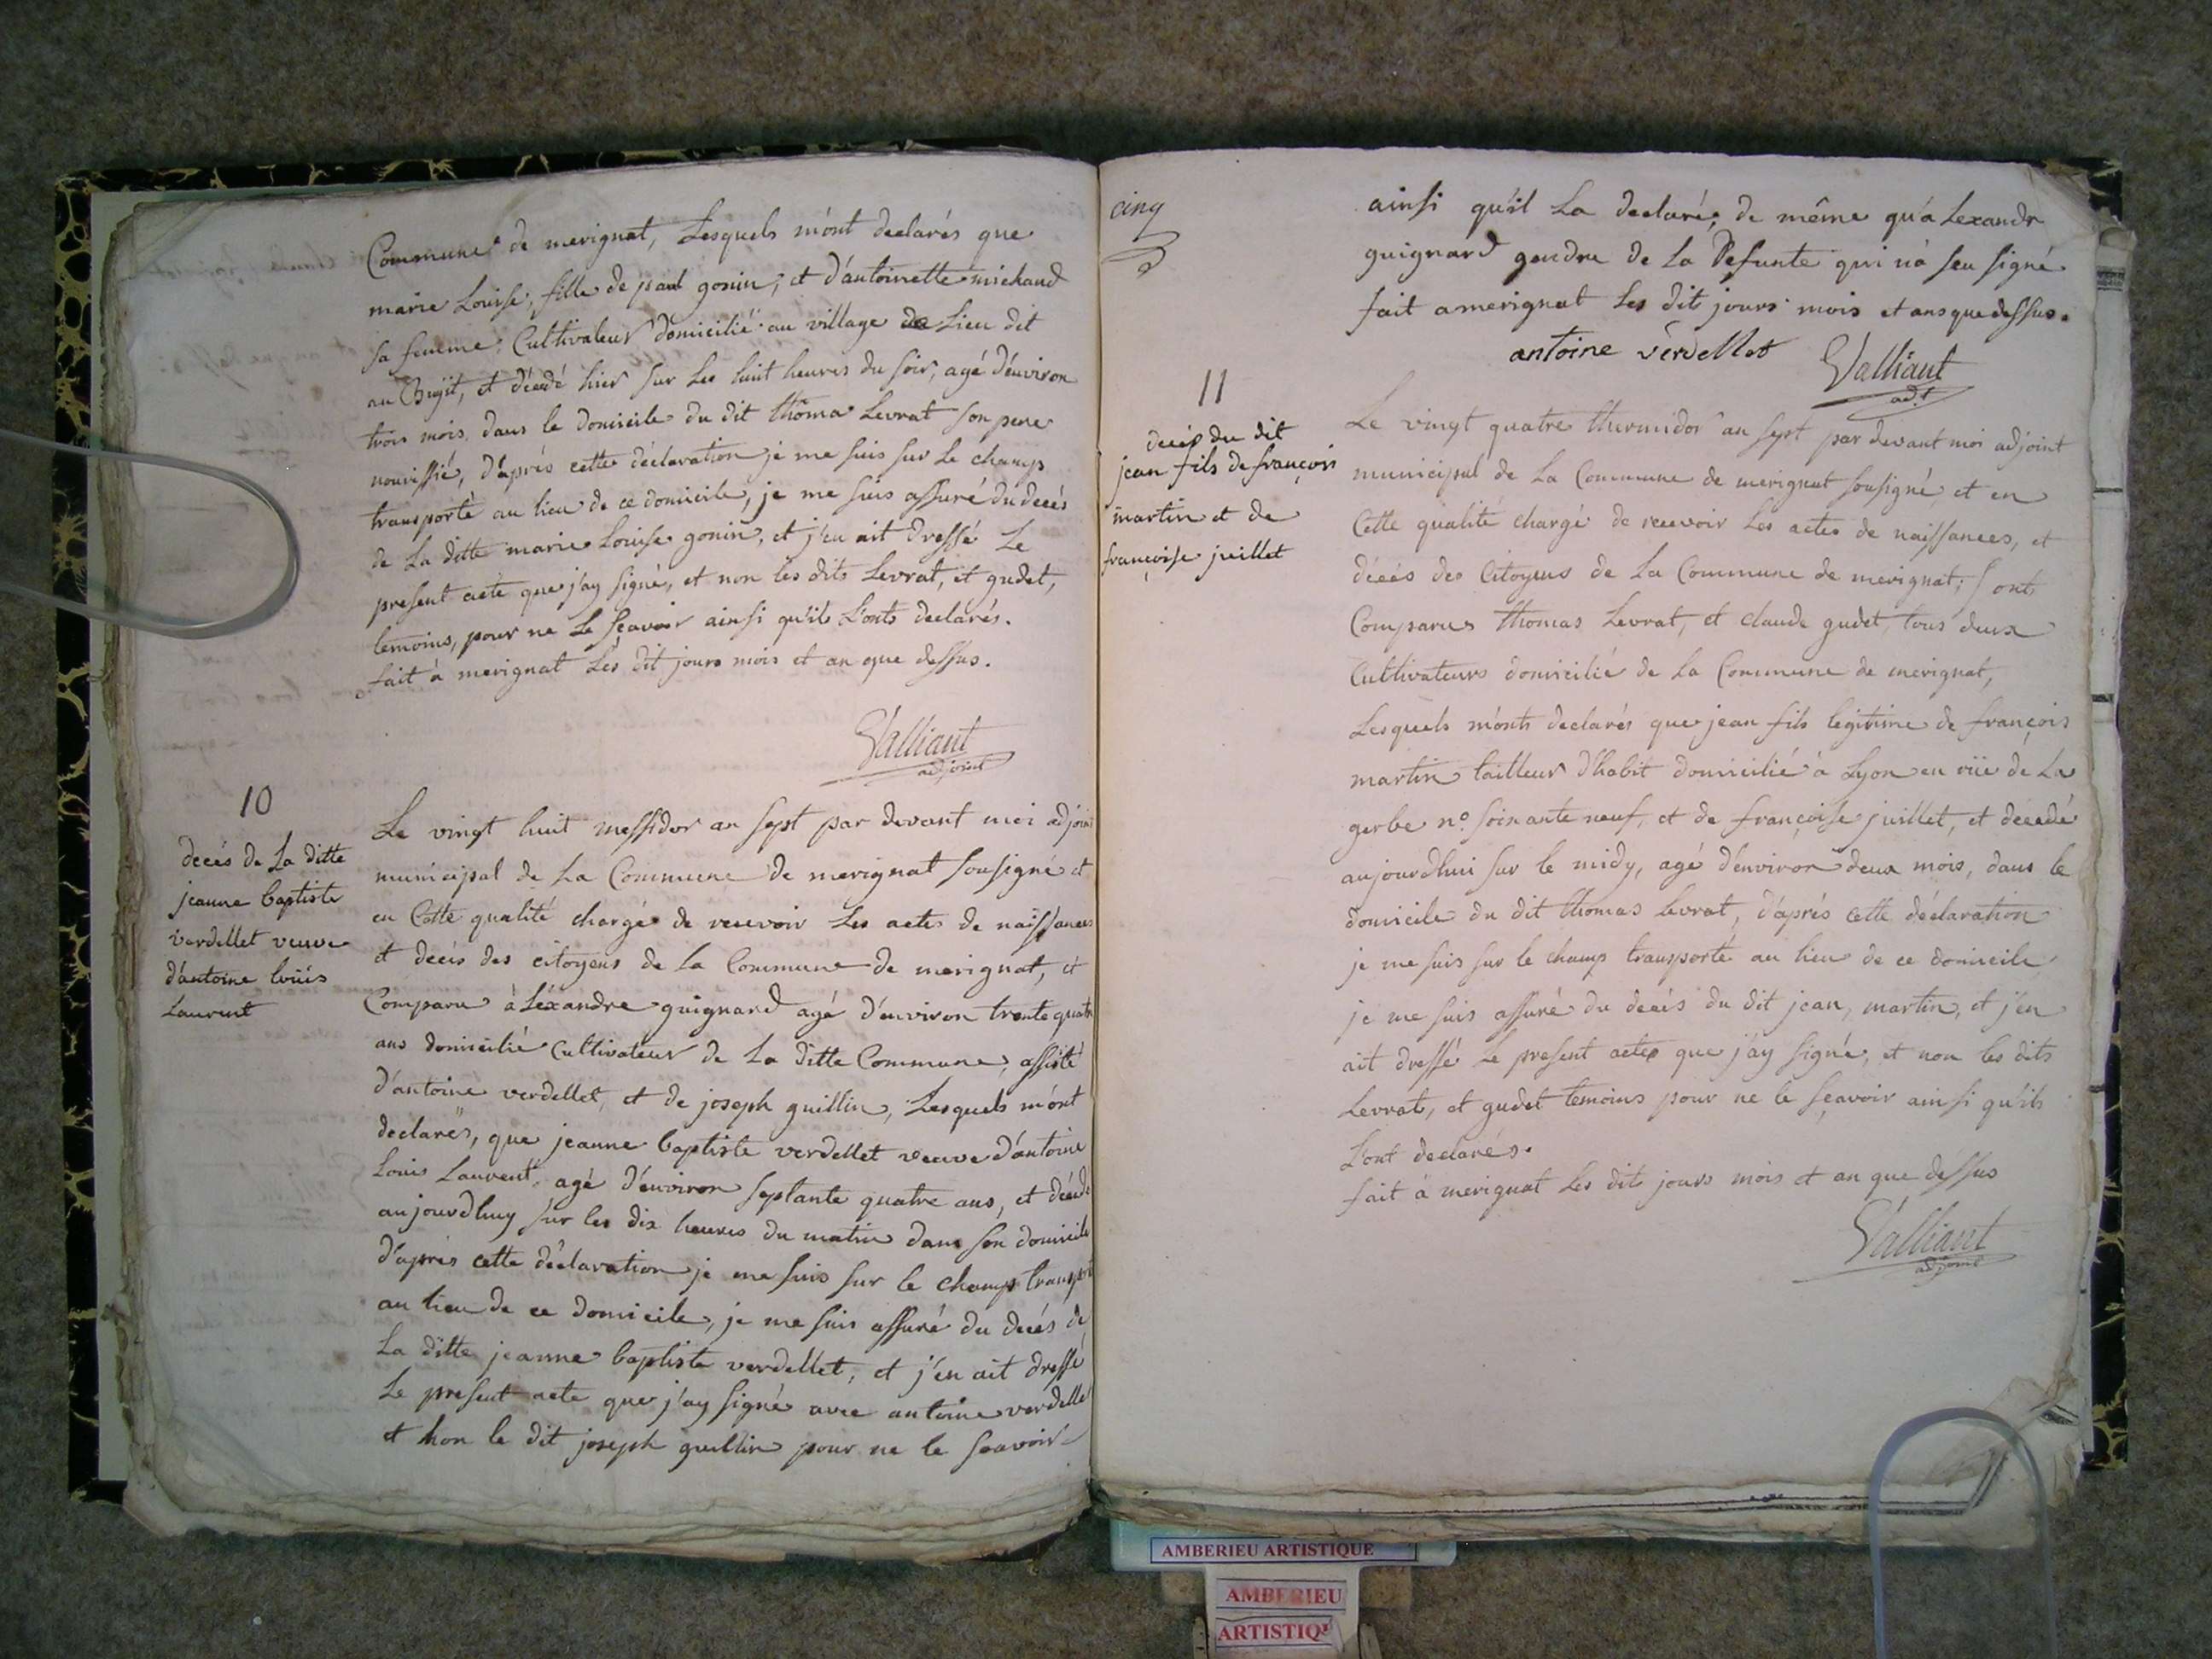 Commune de merignat, Lesquels m'ont declarés que
marie Louise, fille de paul gonin, et d'antoinette michaud
sa femme, Cultivateur domicilié au village de Lieu dit
au et décédé hier sur les huit heures du soir, agé d'environ
trois mois, dans le domicile du dit thoma Levrat son pere
nourissié, d'aprés cette déclaration je me suis sur Le champ
transporté au lieu de ce domicile, je me suis assuré du decés
de La ditte marie Louise gonin, et j'en ait dressé Le
present acte que j'ay signé, et non les dits Levrat, et gudet,
temoins, pour ne Le sçavoir ainsi qu'ils L'onts declarés.
fait à merignat Les dit jours mois et an que dessus.
Valliant
adjoint
10
decés de La ditte
jeanne baptiste
verdellet veuve
d'antoine loüis
Laurent
Le vingt huit messidor an sept par devant moi adjoint
municipal de La Commune de merignat sousigné et
en Cette qualité chargé de recevoir Les actes de naissances
et decés des citoyens de La Commune de merignat, et
Comparu àLéxandre guignard agé d'environ trente quatre
ans domicilié Cultivateur de La ditte Commune, assisté
d'antoine verdellet, et de joseph guillin, Lesquels m'ont
declarés, que jeanne baptiste verdellet veuve d'antoine
Louis Laurent, agé d'environ septante quatre ans, et décédé
aujourdhuy sur les dix heures du matin dans son domicile
d'aprés cette déclaration je me suis sur le champ transporté
au lieu de ce domicile, je me suis assuré du decés de
La ditte jeanne baptiste verdellet, et j'en ait dressé
Le present acte que j'ay signé avec antoine verdellet
et non le dit joseph guillin pour ne le sçavoir
cinq
ainsi qu'il La declaré, de même qu'a Lexandre
guignard gendre de La Defunte qui n'a seu signé
fait a merignat Les dit jours mois et ans que dessus.
antoine verdellet Valliant
adj.t
11
decés du dit
jean fils de françois
martin et de
françoise juillet
Le vingt quatre thermidor an sept par devant moi adjoint
municipal de La Commune de merignat sousigné et en
Cette qualité chargé de recevoir Les actes de naissances, et
décés des Citoyens de La Commune de merignat; Sont
Comparus thomas Levrat, et claude gudet, tous deux
Cultivateurs domicilié de La Commune de merignat,
Lesquels m'onts declarés que jean fils legitime de françois
martin tailleur d'habit domicilié à Lyon en rüe de La
gerbe n.º soixante neuf, et de françoise juillet, et décedé
aujourdhui sur le midy, agé d'environ deux mois, dans le
domicile du dit thomas levrat, d'aprés cette déclaration
je me suis sur le champ transporté au lieu de ce domicile,
je me suis assuré du decés du dit jean, martin, et j'en
ait dressé Le present acte que j'ay signé, et non les dits
Levrat, et gudet temoins pour ne le sçavoir ainsi qu'ils
L'ont declarés.
fait à merignat Les dits jours mois et an que dessus
Valliant
adjoint
AMBERIEU ARTISTIQUE
AMBERIEU
ARTISTIQU